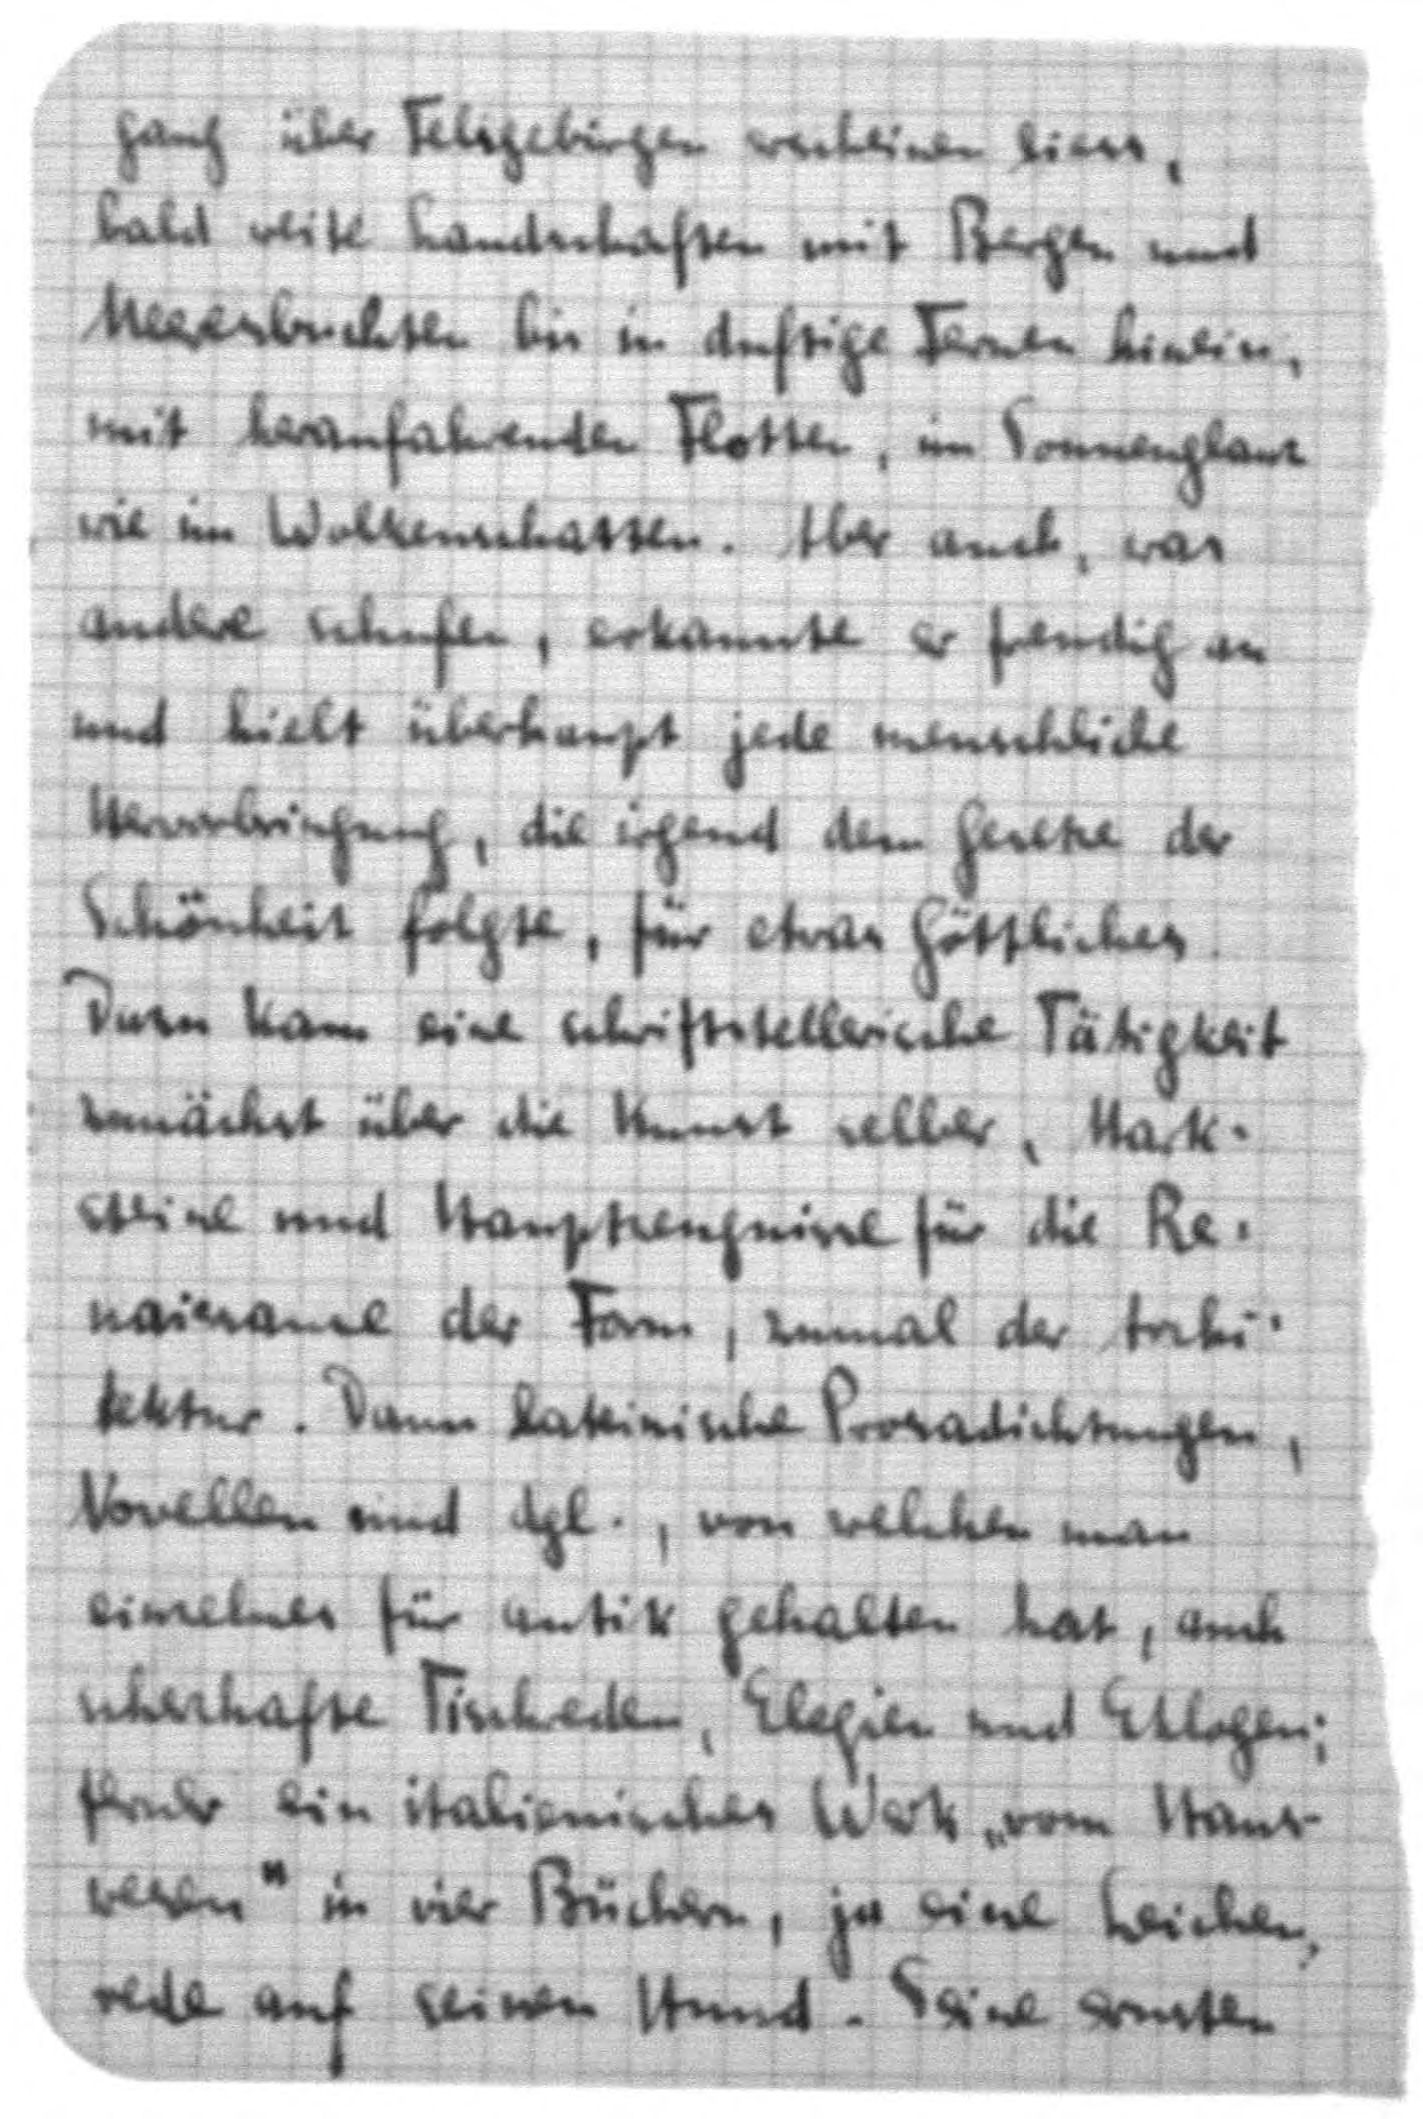 gang über Felsgebirgen erscheinen liess,
bald weite Landschaften mit Bergen und
Meeresbuchten bis in duftige Fernen hinein,
mit heranfahrenden Flotten, im Sonnenglanz
wie im Wolkenschatten. Aber auch, was
andere schufen, erkannte er freudig an
und hielt überhaupt jede menschliche
Hervorbringung, die irgend dem Gesetze der
Schönheit folgte, für etwas Göttliches.
Dazu kam eine schriftstellerische Tätigkeit
zunächst über die Kunst selber, Mark-
steine und Hauptzeugnisse für die Re-
naissance der Form, zumal der Archi-
tektur. Dann lateinische Prosadichtungen,
Novellen und dgl., von welchen man
einzelnes für antik gehalten hat, auch
scherzhafte Tischreden, Elegien und Eklogen;
ferner ein italienisches Werk „vom Haus-
wesen" in vier Büchern, ja eine Leichen-
rede auf seinen Hund. Seine ernsten